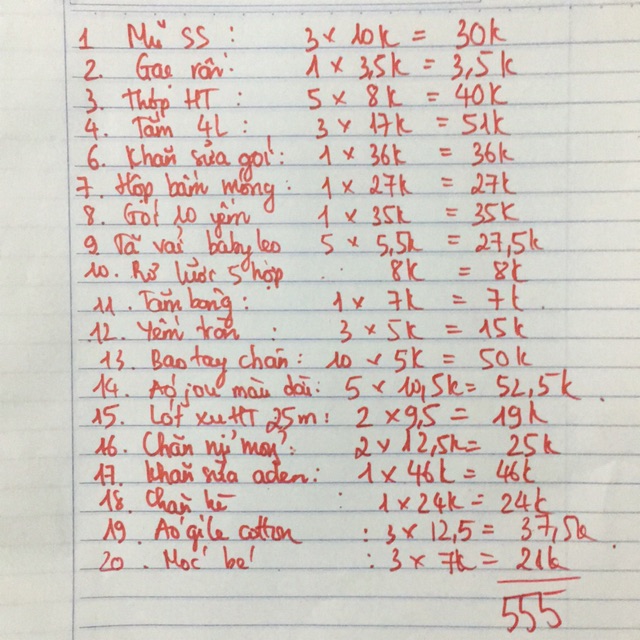 1 Mũ SS : 3 × 10k = 30k
2. Gạc rốn: 1 × 3,5k = 3,5k
3. Thóp HT : 5 × 8k = 40k
4. Tăm 4L : 3 × 17k = 51k
6. Khăn sữa gói : 1 × 36k = 36k
7. Hộp bấm móng : 1 × 27k = 27k
8. Gót 10 yếm 1 × 35k = 35k
9 Tã vải babyleo 5 × 5,5k = 27,5k
10. Rơ lưỡi 5 hộp 8k = 8k
11. Tăm bông : 1 × 7k = 7k
12. Yếm tròn : 3 × 5k = 15k
13. Bao tay chân : 10 × 5k = 50k
14. Áo jou màu dài : 5 × 10,5k = 52,5k
15. Lót xu HT 25m : 2 × 9,5 = 19k
16. Chăn nỉ : 2 × 12,5k = 25k
17. Khăn sữa aden : 1 × 46k = 46k
18. Chăn hè : 1 × 24k = 24k
19. Áo gile cotton : 3 × 12,5 = 37,5k
20. Móc bé : 3 × 7k = 21k
555